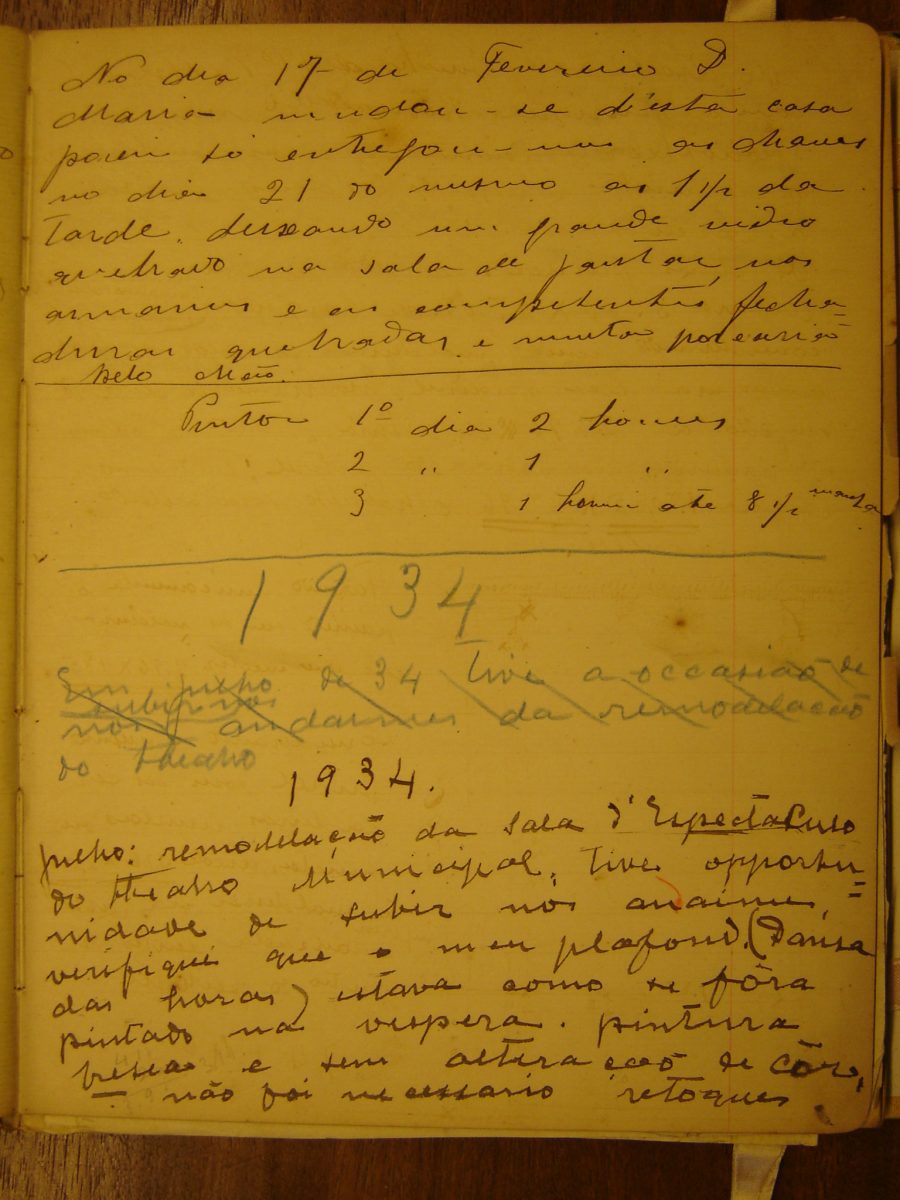 No dia 17 de Fevereiro D.
Maria mudou-se d'esta casa
porem só entregou-me as chaves
no dia 21 do mesmo as 1 1/2 da
tarde, deixando um grande vidro
quebrado na sala de jantar, nos
armarios e as competentes fecha-
duras quebradas e muita porcariă
pelo chão.
Pintor 1º dia 2 homens
2 " 1 "
3 1 homem até 8 1/2 manhã
1934
Em julho de 34 tive a occasião de
subir nos
nos andaimes da remodelação
do theatro
1934.
Julho: remodelação da sala d'Espectaculo
do theatro Municipal, tive opportu=
nidade de subir nos anaimes,
verifiquei que o meu plafond. (Dansa
das horas) estava como se fôra
pintado na vespera. pintura
fresca e sem alteração de côr,
não foi necessario retoques